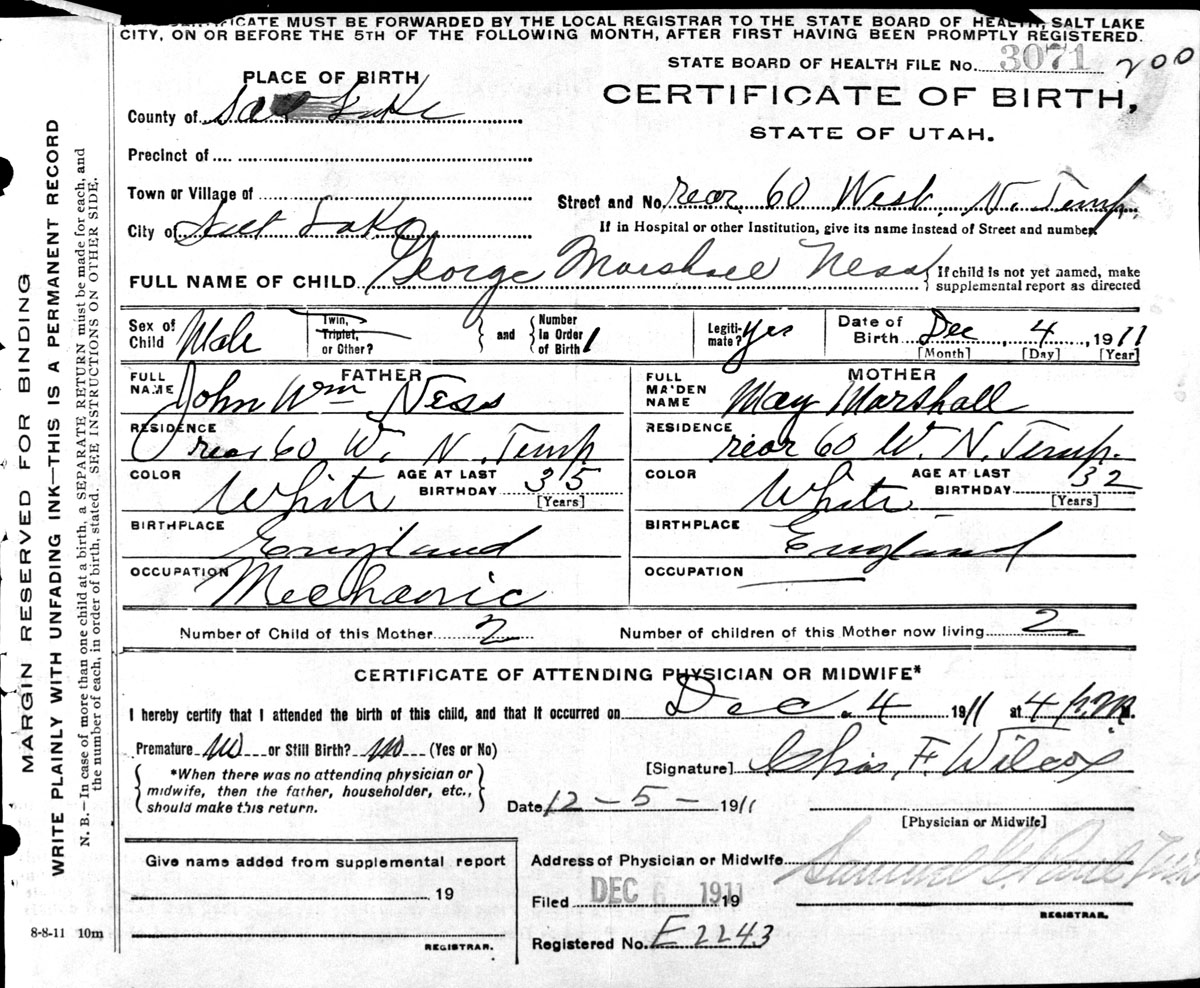 CERTIFICATE MUST BE FORWARDED BY THE LOCAL REGISTRAR TO THE STATE BOARD OF HEALTH, SALT LAKE
CITY, ON OR BEFORE THE 5TH OF THE FOLLOWING MONTH, AFTER FIRST HAVING BEEN PROMPTLY REGISTERED.
STATE BOARD OF HEALTH FILE No. 3071 200
PLACE OF BIRTH
CERTIFICATE OF BIRTH,
STATE OF UTAH.
County of Salt Lake
Precinct of
Town or Village of
Street and No. rear 60 West. N. Temp.
City of Salt Lake
If in Hospital or other Institution, give its name instead of Street and number
FULL NAME OF CHILD George Marshall Ness
If child is not yet named, make
supplemental report as directed
Sex of Child Male
Twin, Triplet, or Other?
and
Number in Order of Birth 1
Legitimate? Yes
Date of Birth Dec 4, 1911
[Month] [Day] [Year]
FATHER
FULL NAME John Wm Ness
RESIDENCE rear 60 W. N. Temp
COLOR White AGE AT LAST BIRTHDAY 35 [Years]
BIRTHPLACE England
OCCUPATION Mechanic
MOTHER
FULL MAIDEN NAME May Marshall
RESIDENCE rear 60 W. N. Temp.
COLOR White AGE AT LAST BIRTHDAY 32 [Years]
BIRTHPLACE England
OCCUPATION
Number of Child of this Mother 2 Number of children of this Mother now living 2
CERTIFICATE OF ATTENDING PHYSICIAN OR MIDWIFE*
I hereby certify that I attended the birth of this child, and that it occurred on Dec. 4 1911 at 4 P.M.
Premature no or Still Birth? no (Yes or No)
*When there was no attending physician or
midwife, then the father, householder, etc.,
should make this return.
[Signature] Chas. F. Wilcox
Date 12-5-1911
[Physician or Midwife]
Give name added from supplemental report
19
REGISTRAR.
Address of Physician or Midwife
Filed DEC 6 1911 19
REGISTRAR.
Registered No. E2243
8-8-11 10m
MARGIN RESERVED FOR BINDING
WRITE PLAINLY WITH UNFADING INK—THIS IS A PERMANENT RECORD
N. B.—In case of more than one child at a birth, a SEPARATE RETURN must be made for each, and
the number of each, in order of birth, stated. SEE INSTRUCTIONS ON OTHER SIDE.